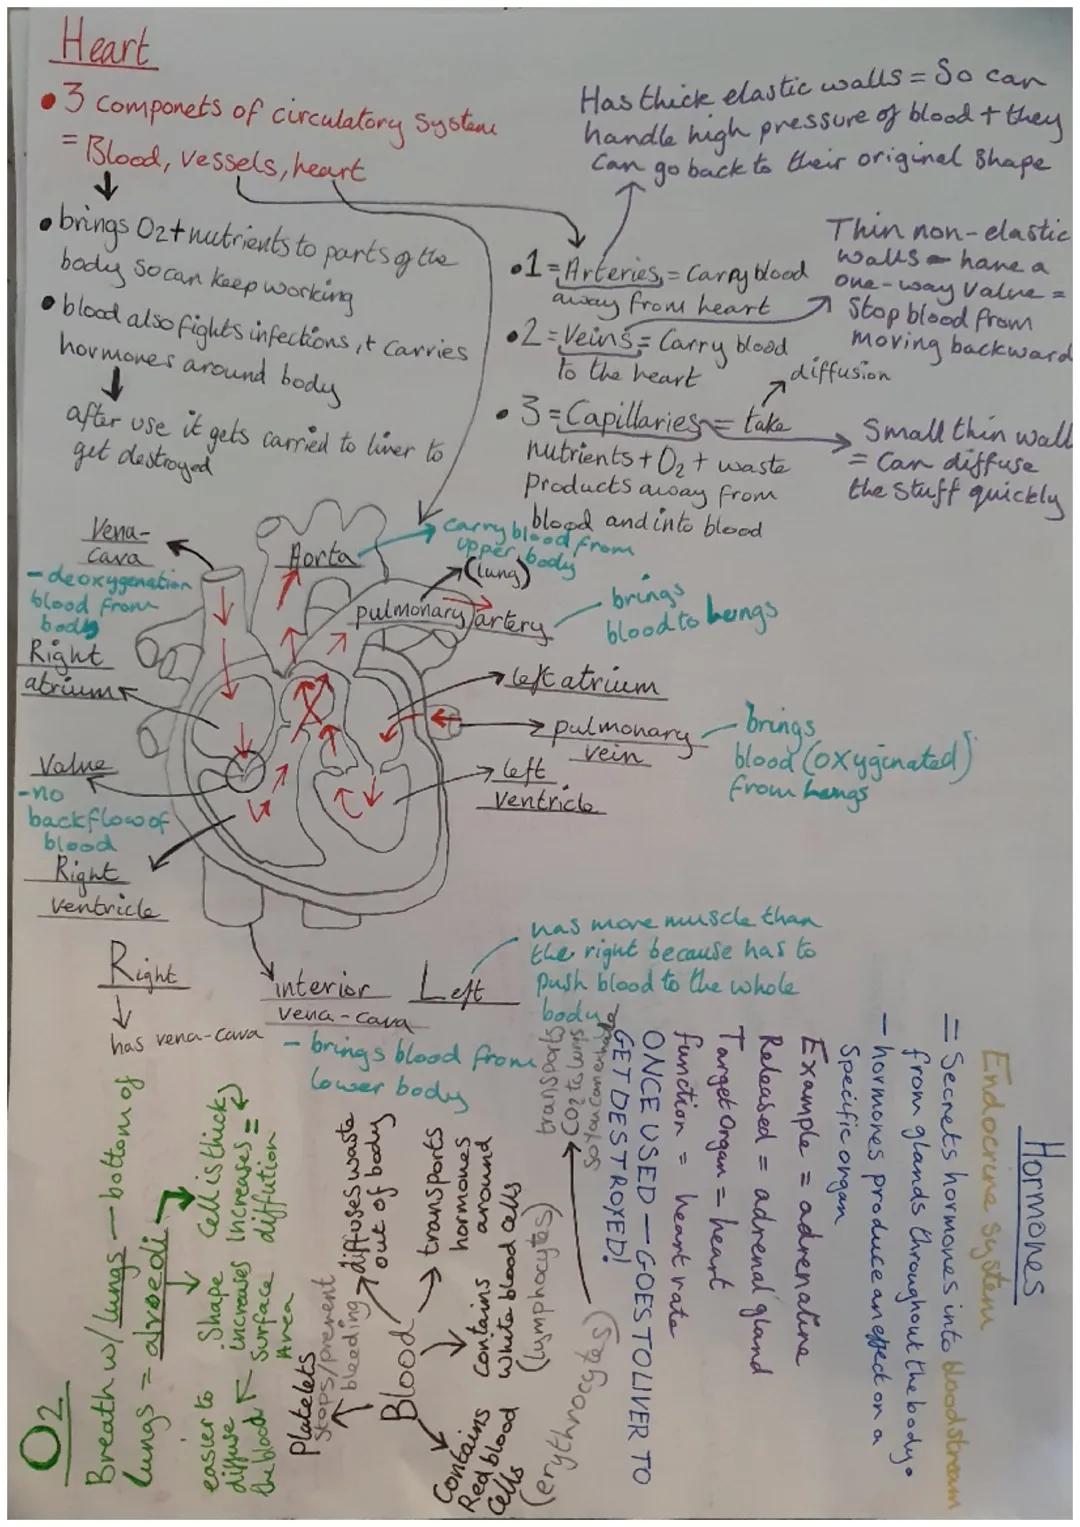 Heart
• 3 componets of circulatory system
= Blood, vessels, heart
• brings O2 + nutrients to parts of the
body so can keep working
• blood also fights infections, + carries
hormones around body
after use it gets carried to liver to
get destroyed
Has thick elastic walls = So can
handle high pressure of blood + they
can go back to their original shape
• 1 = Arteries = Carry blood
away from heart
• 2 = Veins = Carry blood
to the heart
Thin non-elastic
walls - have a
one-way valve =
Stop blood from
moving backward
diffusion
• 3 = Capillaries = take
nutrients + O2 + waste
products away from
blood and into blood
Small thin wall
= Can diffuse
the stuff quickly
Vena-
cava
- deoxygenation
blood from
body
Right
atrium
Valve
- no
backflow of
blood
Right
ventricle
Aorta
Carry blood from
upper body
(lung)
pulmonary artery
brings
blood to lungs
left atrium
pulmonary
vein
- brings
blood (oxyginated)
from lungs
left
ventricle
Right
has vena-cava
interior
vena-cava
- brings blood from
lower body
Left
has more muscle than
the right because has to
push blood to the whole
body
Hormones
Endocrine system
= Secrets hormones into bloodstream
from glands throughout the body.
- hormones produce an effect on a
specific organ
Example = adrenaline
Released = adrenal gland
Target organ = heart
function = heart rate
ONCE USED - GOES TO LIVER TO
GET DESTROYED!
O2
Breath w/ lungs - bottom of
lungs = alvoedi
Cell is thick
Increases =
diffution
Shape
increases
Surface
Area
easier to
diffuse
the blood
Blood
diffuses waste
out of body
transports
hormones
around
Contains
white blood cells
(lymphocytes)
Contains
Red blood
cells
(erythrocytes)
transports
CO2 to lungs
so you can exhale
Platelets
Stops/prevent
bleeding